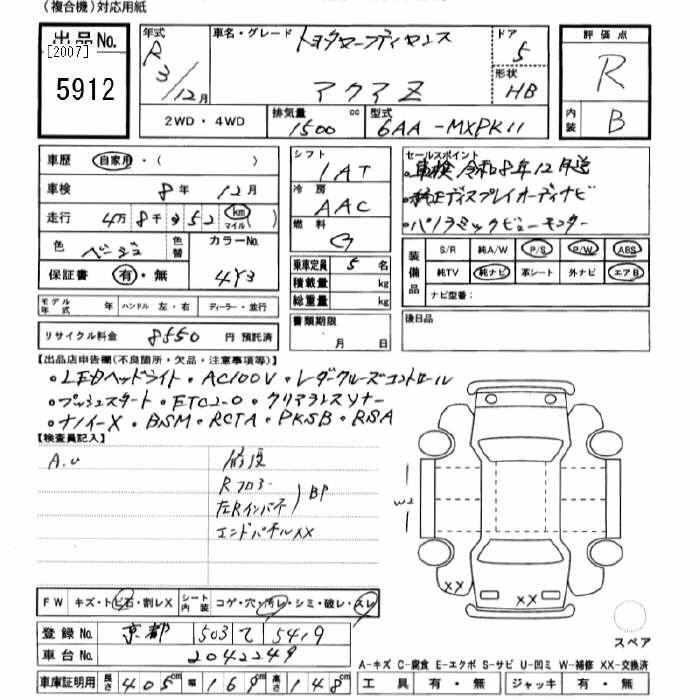 (複合機)対応用紙
出品No. [2007] 5912
年式 R3/12月
車名・グレード トヨタセーフティセンス アクア Z
ドア 5
形状 HB
評価点 R
内装 B
2WD・4WD
排気量 1500 cc
型式 6AA-MXPK11
車歴 自家用・( )
車検 8年12月
走行 4万8千 52 km マイル
色 ベージュ 色替 カラーNo. 4Y3
保証書 有・無
モデル年式 年 ハンドル 左・右 ディーラー・並行
リサイクル料金 8550 円 預託済
シフト IAT
冷房 AAC
燃料 G
乗車定員 5名
積載量 kg
総重量 kg
書類期限 月 日
セールスポイント
・車検 令和8年12月迄
・純正ディスプレイオーディナビ
・パノラミックビューモニター
装備品 S/R 純A/W P/S P/W ABS
純TV 純ナビ 革シート 外ナビ エアB
ナビ型番:
後日品
【出品店申告欄(不良箇所・欠品・注意事項等)】
・LEDヘッドライト・AC100V・レーダークルーズコントロール
・プッシュスタート・ETC2.0・クリアランスソナー
・ナノイーX・BSM・RCTA・PKSB・RSA
【検査員記入】
A.U
修復
Rフロアー
左Rインパネ
BP
エンドパネルXX
W2
XX
XX
FW キズ・トビ石・割レX シート内装 コゲ・穴・汚レ・シミ・破レ・スレ
登録No. 京都 503 て 5419
車台No. 2042249
車庫証明用 長さ 405cm 幅 169cm 高さ 148cm
スペア
A-キズ C-腐食 E-エクボ S-サビ U-凹ミ W-補修 XX-交換済
工具 有・無 ジャッキ 有・無